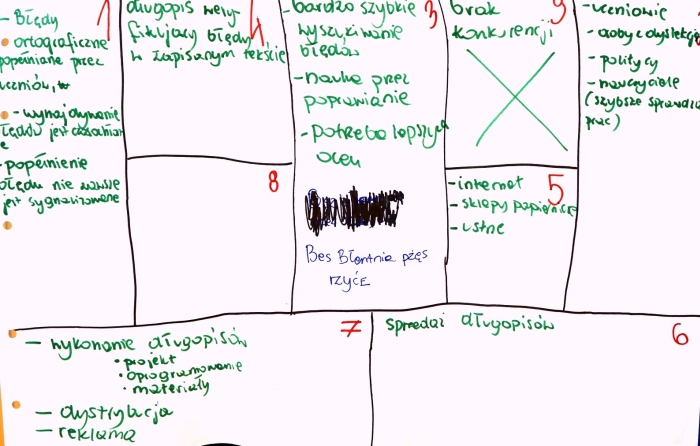 - Błędy
1
ortograficzne
popełniane przez
uczniów,
- wynajdywanie
błędów jest czasochłon
e
popełnienie
błędu nie zawsze
jest sygnalizowane
długopis wery-
fikujący błędy
w zapisanym tekście
4
8
- bardzo szybkie
wyszukiwanie
błędów
3
- nauka przez
poprawianie
- potrzeba lepszych
ocen
Bes Błontnia pżes
rzyćE
brak
konkurencji
9
- internet
- sklepy papiernicze
- ustne
5
- uczniowie
- osoby z dysleksją
- politycy
- nauczyciele
(szybsze sprawdza
prac)
- wykonanie długopisów
• projekt
• oprogramowanie
• materiały
- dystrybucja
- reklama
7
Sprzedaż długopisów
6